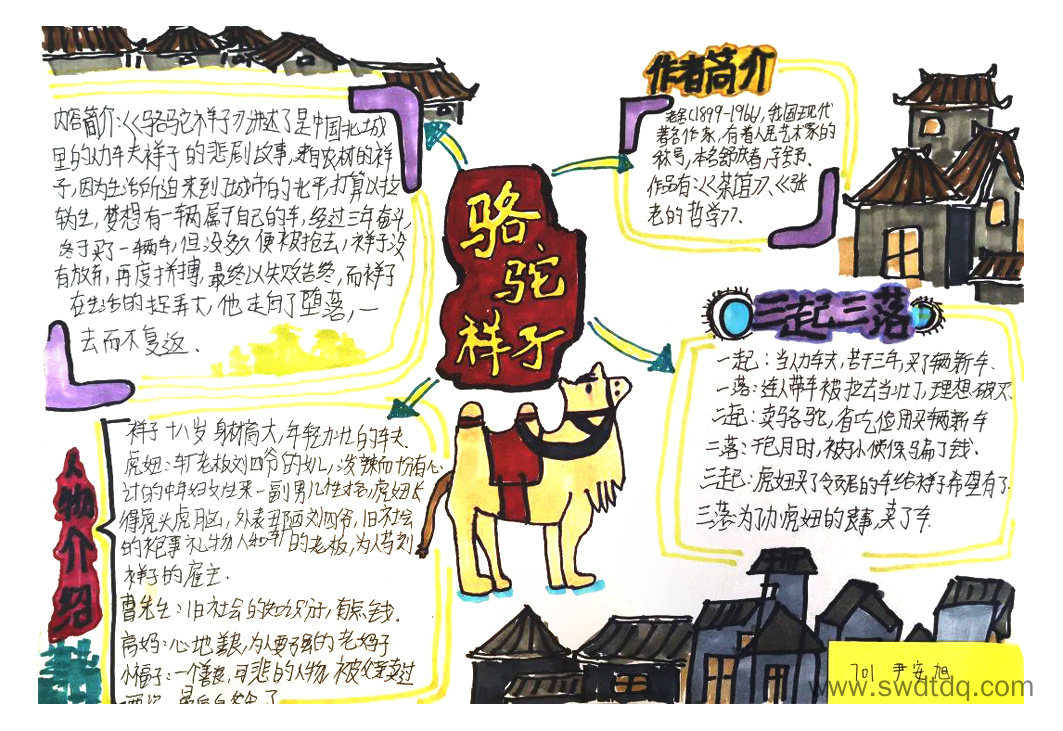 内容简介:《骆驼祥子》讲述了是中国北城
里的人力车夫祥子的悲剧故事,来自农村的祥
子,因为生活所迫来到了城市的北平,打算以拉
车为生,梦想有一辆属于自己的车,经过三年奋斗,
终于买了一辆车,但没多久便被抢去,祥子没
有放弃,再度拼搏,最终以失败告终,而祥子
在生活的捉弄下,他走向了堕落,一
去而不复返.
作者简介
老舍(1899-1966),我国现代
著名作家,有着人民艺术家的
称号,本名舒庆春,字舍予.
作品有:《茶馆》、《张
老的哲学》.
骆
驼
祥子
三起三落
一起:当人力车夫,苦干三年,买了辆新车.
一落:连人带车被抢去当壮丁,理想破灭
二起:卖骆驼,省吃俭用买辆新车
二落:干包月时,被孙侦探骗了钱.
三起:虎妞买了邻居的车给祥子希望有了
三落:为了办虎妞的丧事,卖了车.
人物介绍
祥子十八岁身材高大,年轻力壮的车夫
虎妞:车厂老板刘四爷的女儿,泼辣而切有心
计的中年妇女生来一副男儿性格虎妞长
得虎头虎脑,外表丑陋刘四爷,旧社会
的老板,为人苛刻
祥子的雇主.
曹先生:旧社会的知识份,有点钱.
高妈:心地善良,为人要强的老妈子
小福子:一个善良,可悲的人物,被父亲卖过
两次,最后自杀了
701 尹安旭
www.swdtdq.com